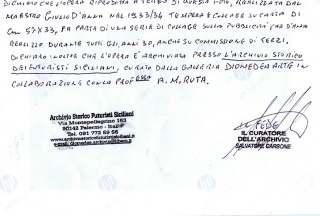 DICHIARO CHE L'OPERA RIPRODOTTA A TERGO DI QUESTA FOTO, REALIZZATA DAL
MAESTRO GIULIO D'ANNA NEL 1933/34 TEMPERA E COLLAGE SU CARTA DI
Cm 57X33, FA PARTE DI UNA SERIE DI COLLAGE SULLA PUBBLICITÀ CHE D'ANNA
REALIZZÒ DURANTE TUTTI GLI ANNI 30, ANCHE SU COMMISSIONE DI TERZI.
DICHIARO INOLTRE CHE L'OPERA È ARCHIVIATA PRESSO L'ARCHIVIO STORICO
DEI FUTURISTI SICILIANI, CURATO DALLA GALLERIA DIOMEDEA ARTE IN
COLLABORAZIONE CON LA PROFESSA A.M. RUTA.
Archivio Storico Futuristi Siciliani
Via Montepellegrino 163
90142 Palermo - Italy
Tel. 091
IN FEDE
IL CURATORE
DELL'ARCHIVIO
SALVATORE CARBONE